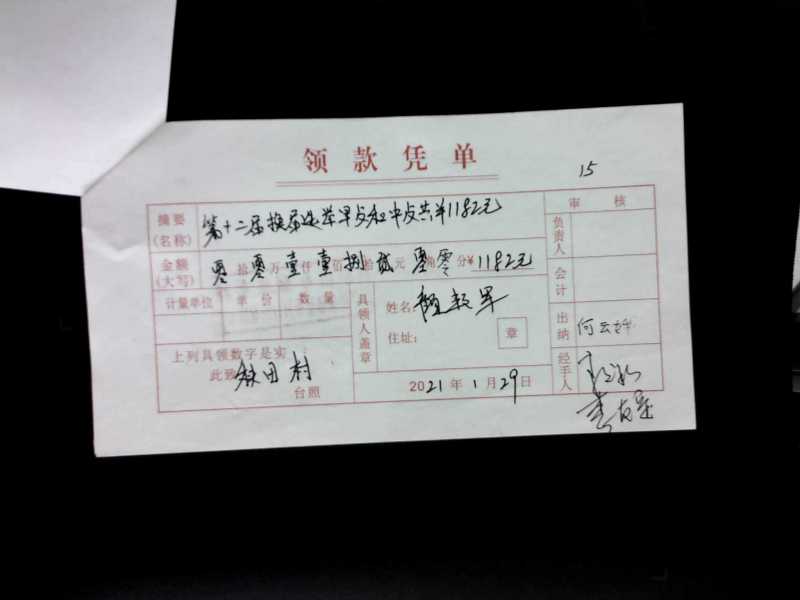 领款凭单
15
摘要(名称) 第十二届换届选举早点和中点共羊1182元
审核
金额(大写) 零拾零万壹仟壹佰捌拾贰元零角零分¥1182元
负责人
会计
计量单位 单价 数量
具领人盖章
姓名:
住址: 章
出纳 何云
上列具领数字是实
此致 林田村
台照
2021年1月29日
经手人